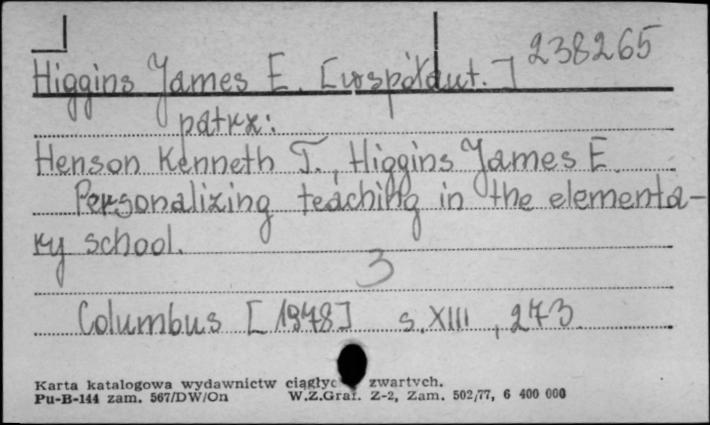 238265
Higgins James E. [współaut.]
patrz:
Henson Kenneth T., Higgins James E.
Personalizing teaching in the elementa-
ry school.
3
Columbus [1978] s. XIII, 273
Karta katalogowa wydawnictw ciągłyc zwartych.
Pu-B-144 zam. 567/DW/On W.Z.Graf. Z-2, Zam. 502/77, 6 400 000